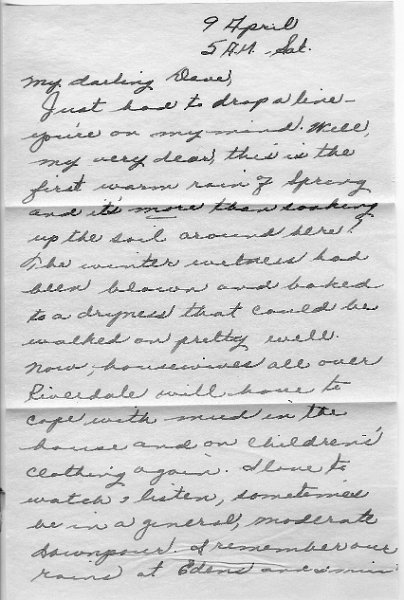 9 April
5 A.M. Sat.
My darling Dave,
Just had to drop a line -
you're on my mind. Well,
my very dear, this is the
first warm rain of Spring
and it's more than soaking
up the soil around here!
The winter wetness had
been blown and baked
to a dryness that could be
walked on pretty well.
Now, housewives all over
Riverdale will have to
cope with mud in the
house and on children's
clothing again. I love to
watch & listen, sometimes
be in a general, moderate
downpour. I remember our
rains at Edens and